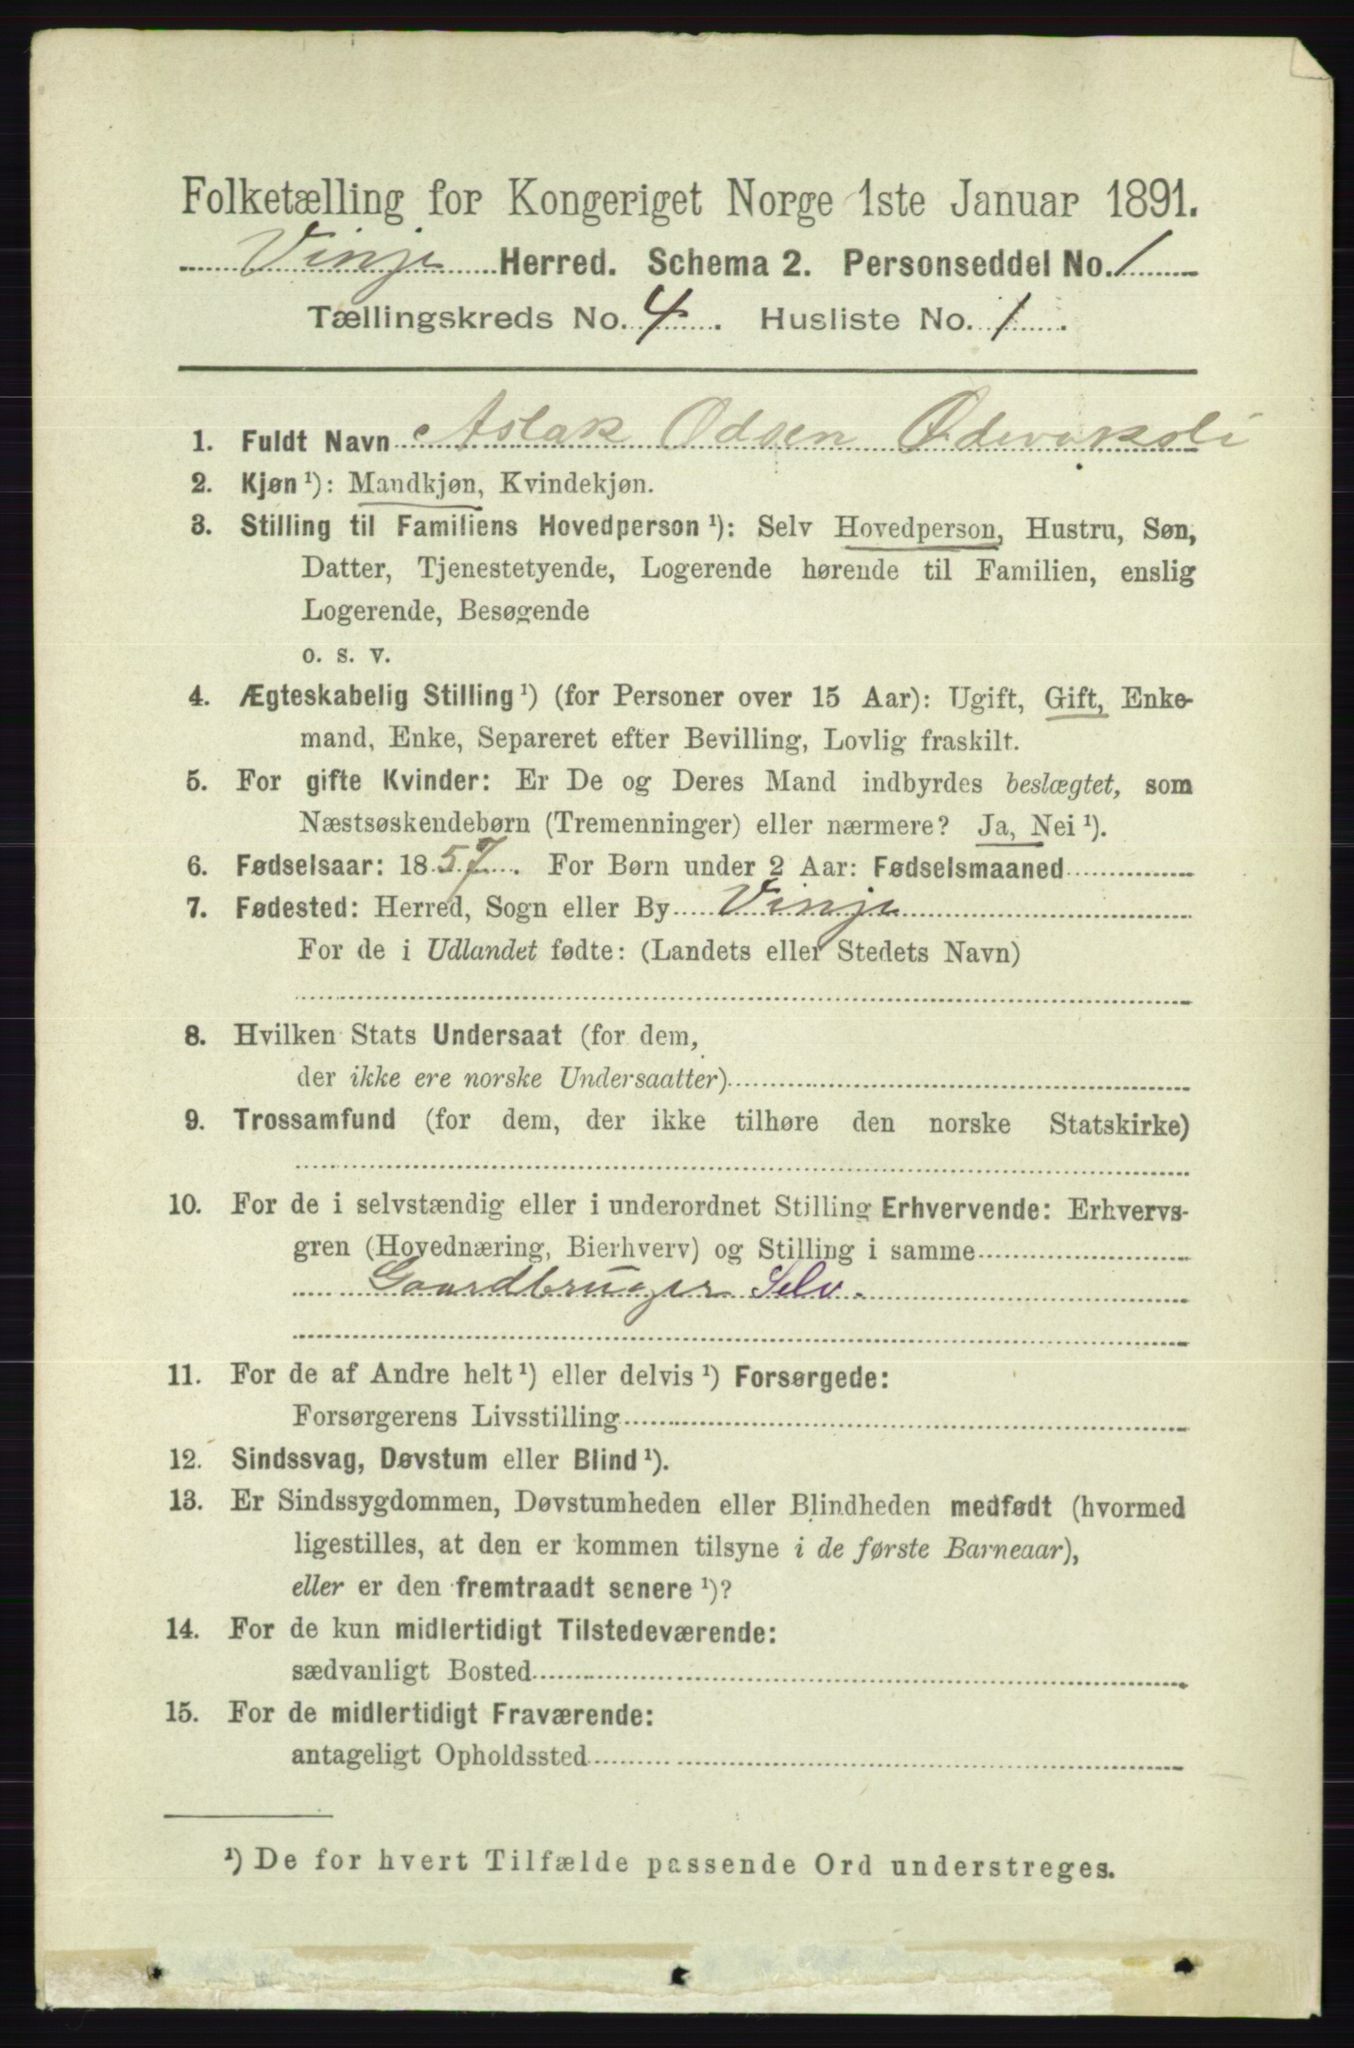 Folketælling for Kongeriget Norge 1ste Januar 1891.
Vinje Herred. Schema 2. Personseddel No. 1
Tællingskreds No. 4. Husliste No. 1.
1. Fuldt Navn Aslak Odsen
2. Kjøn ¹): Mandkjøn, Kvindekjøn.
3. Stilling til Familiens Hovedperson ¹): Selv Hovedperson, Hustru, Søn,
Datter, Tjenestetyende, Logerende hørende til Familien, enslig
Logerende, Besøgende
o. s. v.
4. Ægteskabelig Stilling ¹) (for Personer over 15 Aar): Ugift, Gift, Enke-
mand, Enke, Separeret efter Bevilling, Lovlig fraskilt.
5. For gifte Kvinder: Er De og Deres Mand indbyrdes beslægtet, som
Næstsøskendebørn (Tremenninger) eller nærmere? Ja, Nei ¹).
6. Fødselsaar: 1857. For Børn under 2 Aar: Fødselsmaaned
7. Fødested: Herred, Sogn eller By Vinje
For de i Udlandet fødte: (Landets eller Stedets Navn)
8. Hvilken Stats Undersaat (for dem,
der ikke ere norske Undersaatter)
9. Trossamfund (for dem, der ikke tilhøre den norske Statskirke)
10. For de i selvstændig eller i underordnet Stilling Erhvervende: Erhvervs-
gren (Hovednæring, Bierhverv) og Stilling i samme
Gaardbruger Selv.
11. For de af Andre helt ¹) eller delvis ¹) Forsørgede:
Forsørgerens Livsstilling
12. Sindssvag, Døvstum eller Blind ¹).
13. Er Sindssygdommen, Døvstumheden eller Blindheden medfødt (hvormed
ligestilles, at den er kommen tilsyne i de første Barneaar),
eller er den fremtraadt senere ¹)?
14. For de kun midlertidigt Tilstedeværende:
sædvanligt Bosted
15. For de midlertidigt Fraværende:
antageligt Opholdssted
¹) De for hvert Tilfælde passende Ord understreges.